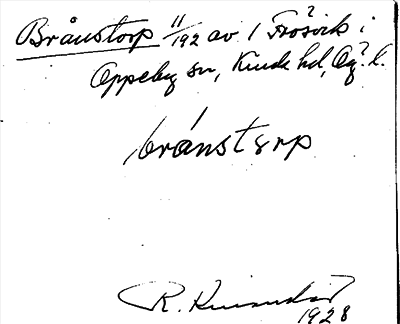 Brånstorp 11/192 av 1 Frösvik i
Oppeby sn, Kinda hd, Ög. l.
bránstɘrp
R.
1928